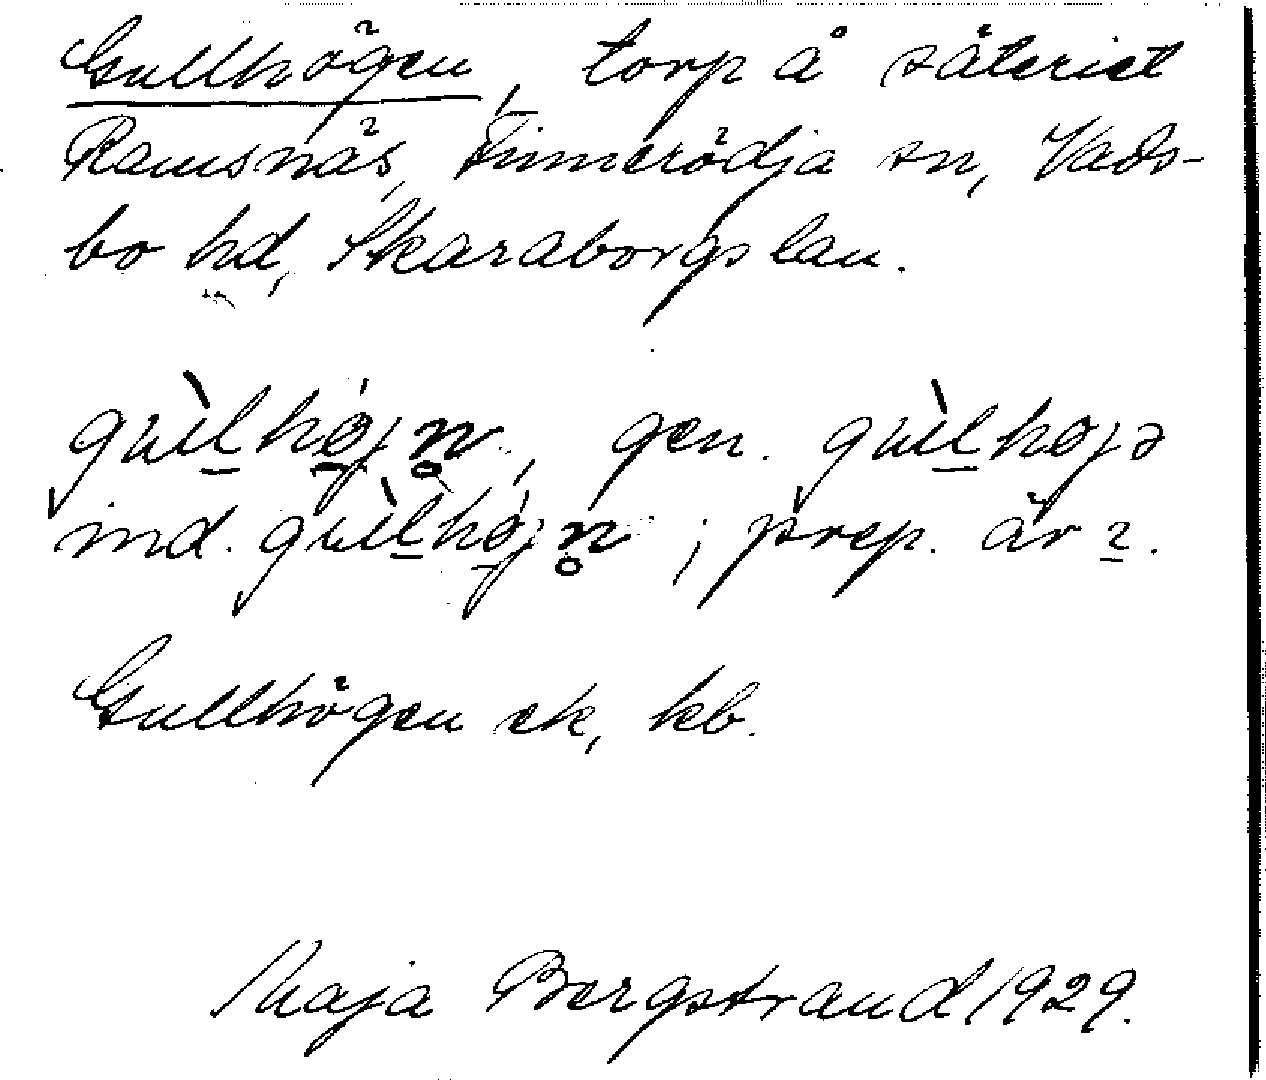 Gullhögen, torp å säteriet
Ramsnäs, Finnerödja sn, Vads-
bo hd, Skaraborgs län.
gùlhøjn̥, gen. gùlhøjs
ind. gùlhøjn̥; prep. är 2.
Gullhögen ek, kb.
Maja Bergstrand 1929.